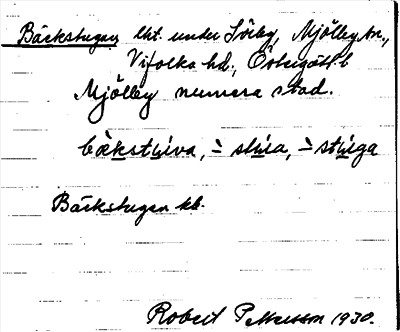 Bäckstugan lht. under Sörby, Mjölby sn.,
Vifolka hd., Östergötl.
Mjölby numera stad.
bäkstuva, - stua, - stuga
Bäckstugan kb.
Robert Pettersson 1930.